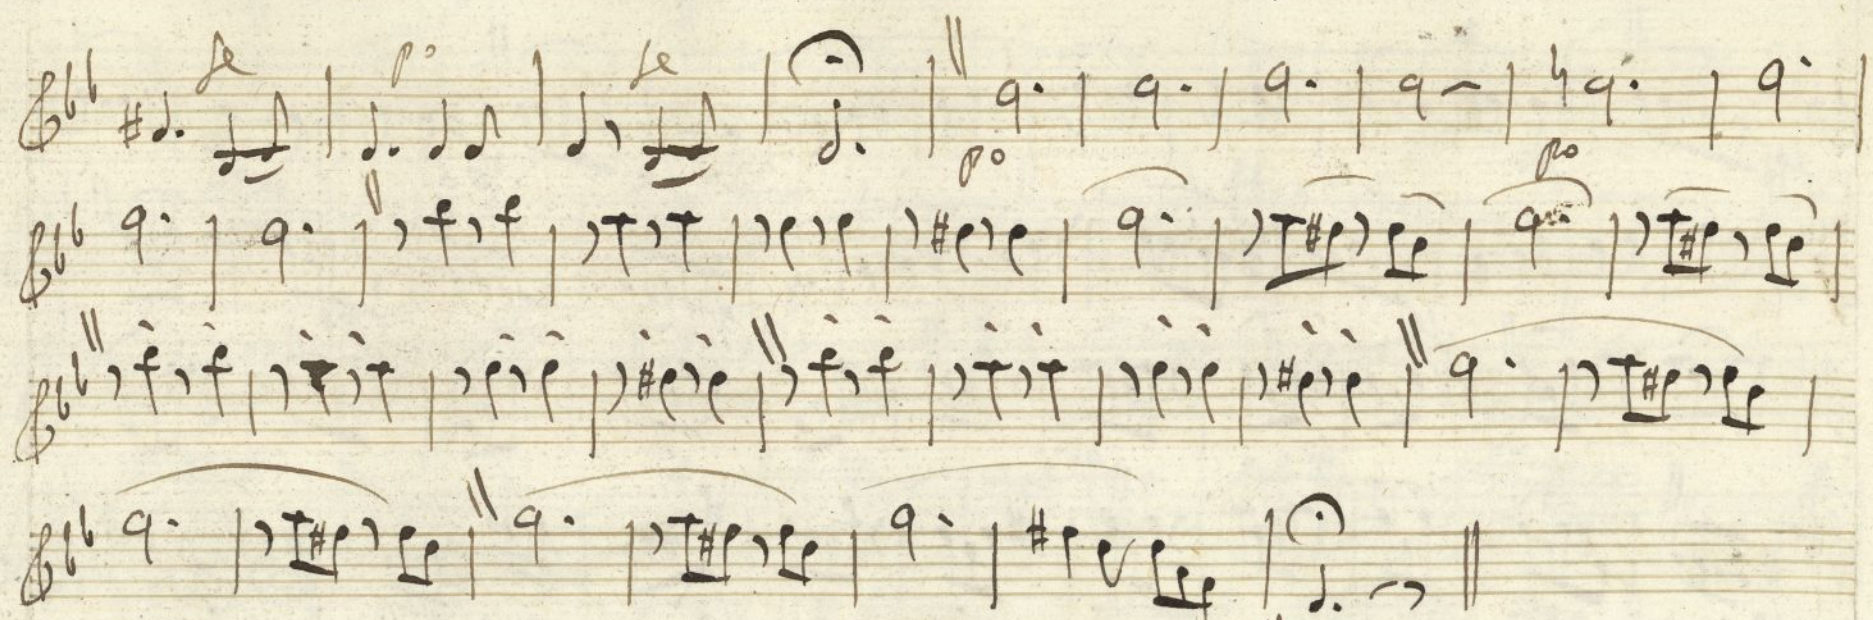 fe po fe
po po